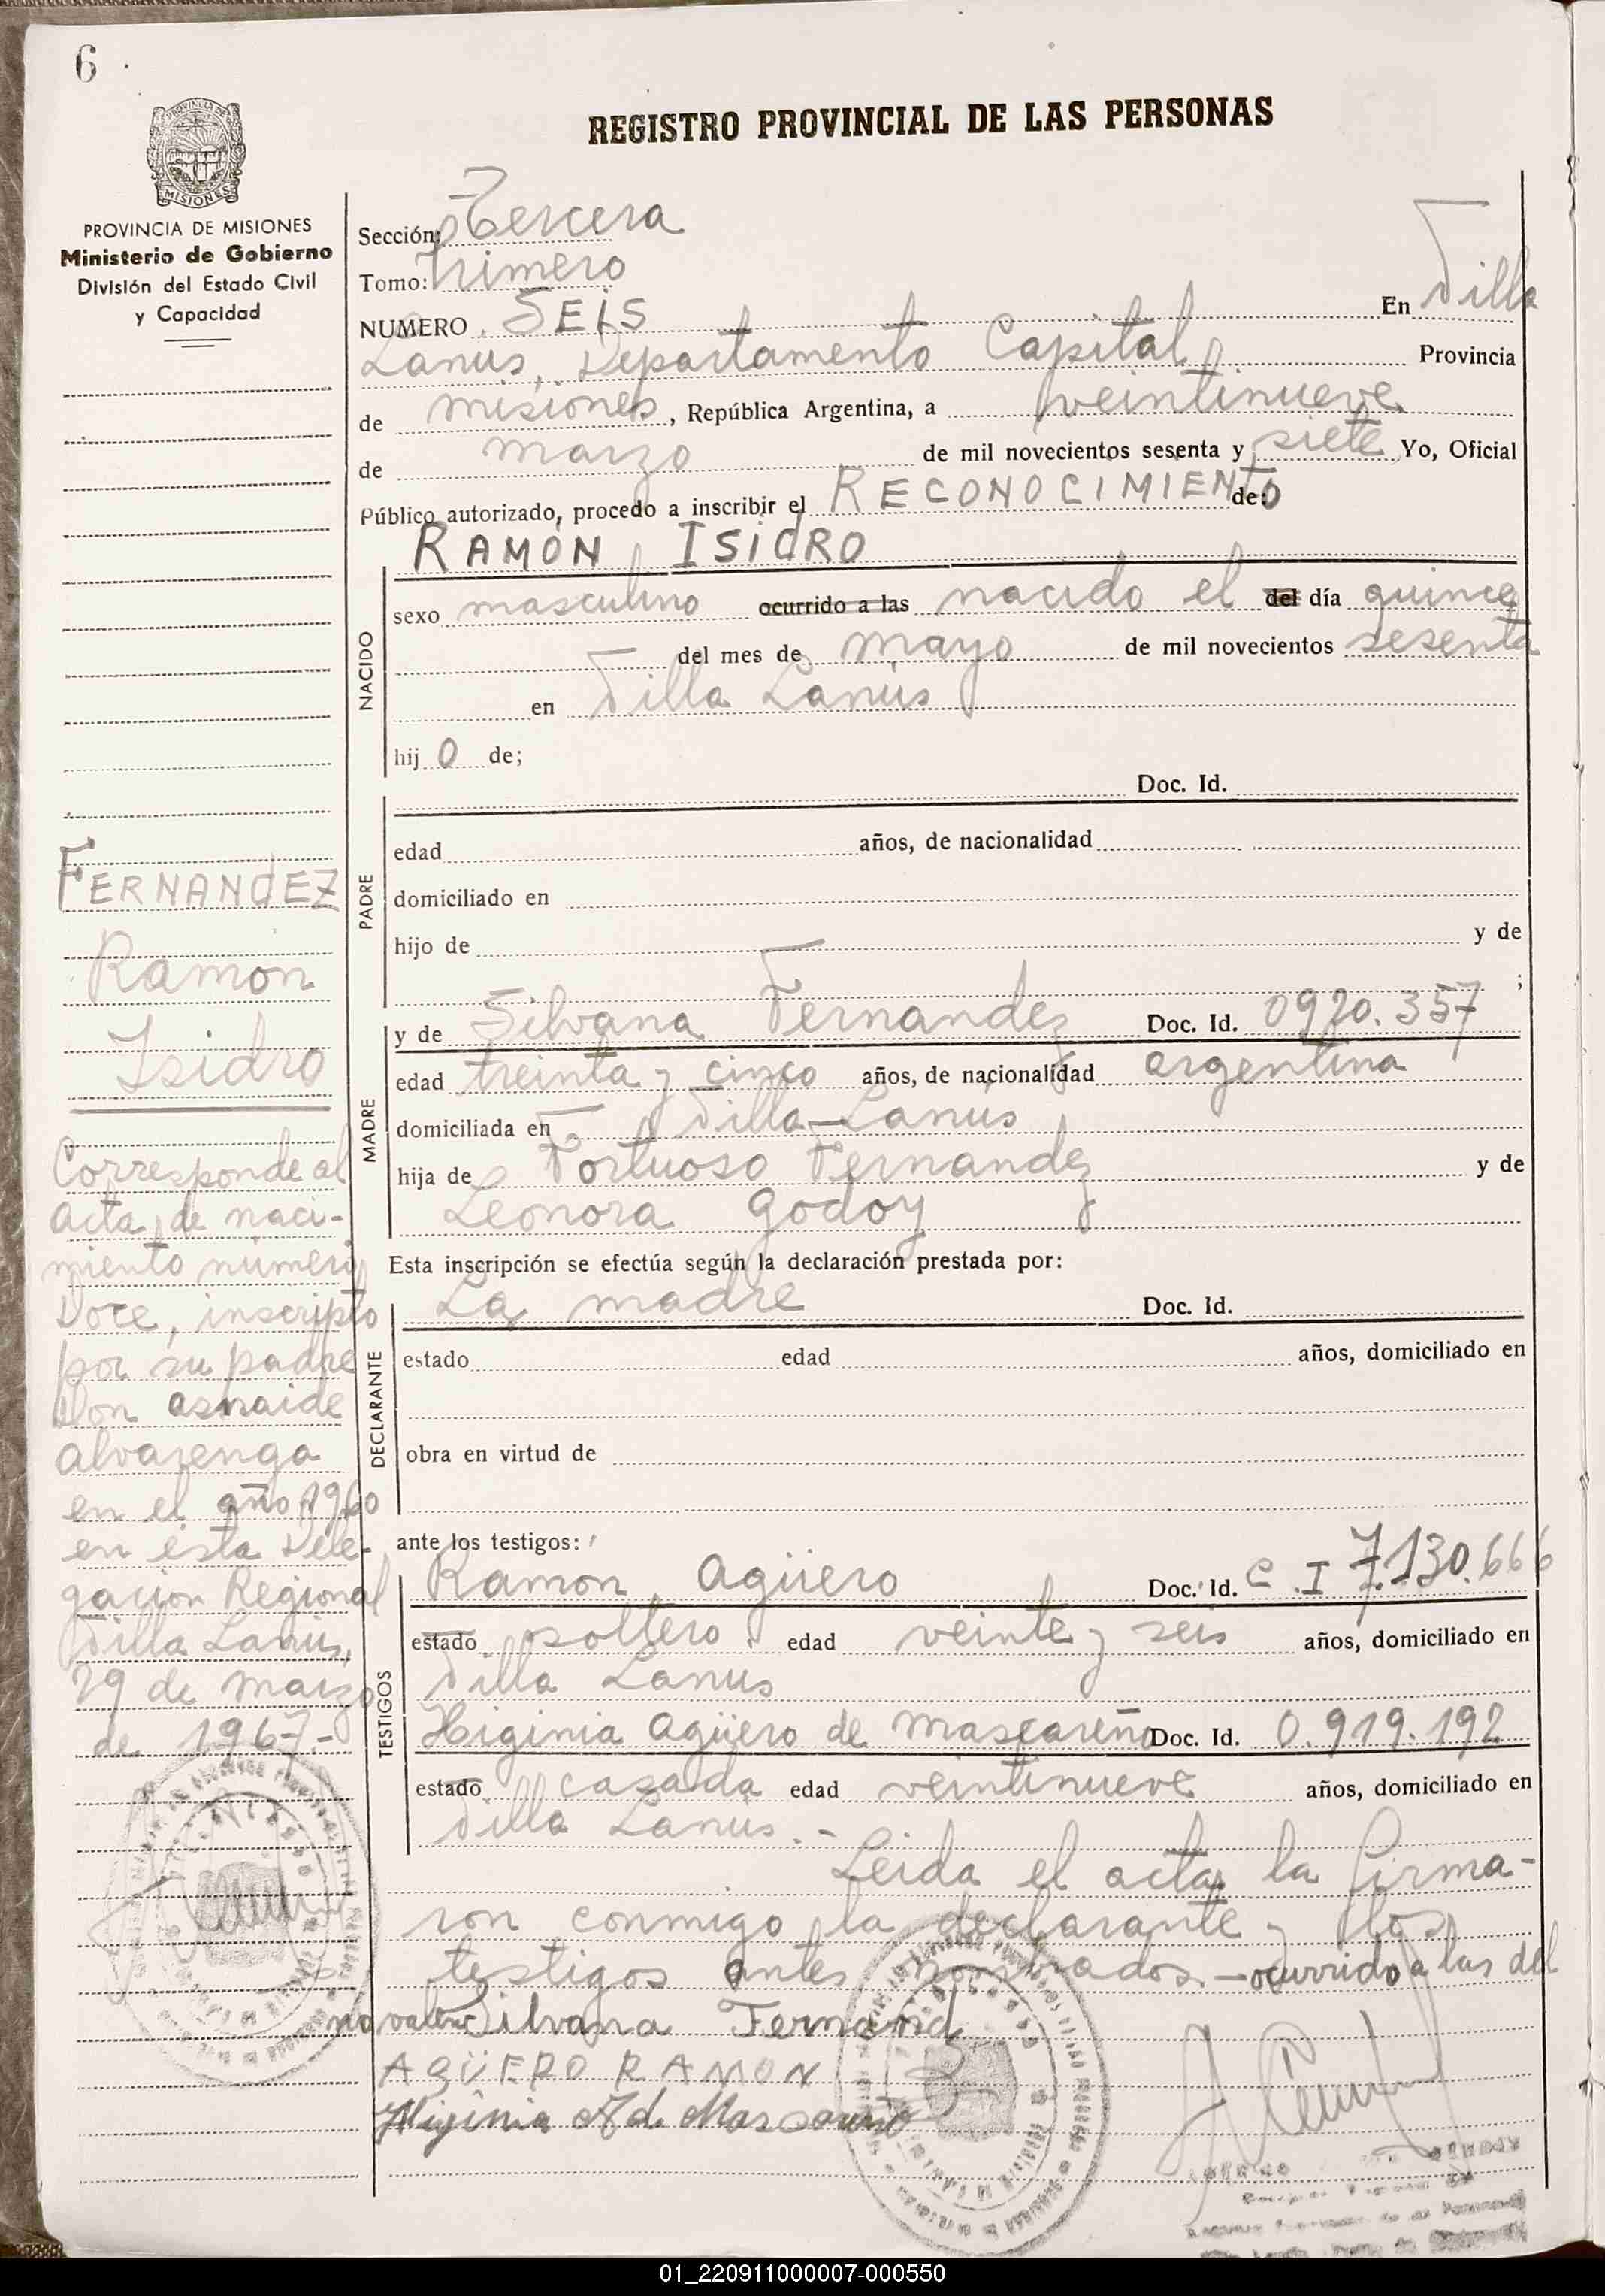 6
REGISTRO PROVINCIAL DE LAS PERSONAS
MISIONES
PROVINCIA DE MISIONES
Ministerio de Gobierno
División del Estado Civil
y Capacidad
FERNANDEZ
Ramon
Isidro
Corresponde al
acta de naci-
miento número
Doce, inscripto
por su padre
Don Asnaide
Alvarenga
en el año 1960
en ésta Dele-
gacion Regional
Villa Lanús,
29 de marzo
de 1967.-
Sección: Tercera
Tomo: Primero
NUMERO SEIS En Villa
Lanus, Departamento Capital, Provincia
de misiones, República Argentina, a veintinueve
de marzo de mil novecientos sesenta y siete Yo, Oficial
Público autorizado, procedo a inscribir el RECONOCIMIENTO de:
RAMÓN ISIDRO
NACIDO
sexo masculino ocurrido a las nacido el del día quince
del mes de mayo de mil novecientos sesenta
en Villa Lanús
hijo de;
Doc. Id.
PADRE
edad años, de nacionalidad
domiciliado en
hijo de y de
;
MADRE
y de Silvana Fernandez Doc. Id. 0920.357
edad treinta y cinco años, de nacionalidad argentina
domiciliada en Villa Lanús
hija de Tortuoso Fernandez y de
Leonora Godoy
Esta inscripción se efectúa según la declaración prestada por:
DECLARANTE
La madre Doc. Id.
estado edad años, domiciliado en
obra en virtud de
ante los testigos:
TESTIGOS
Ramon Agüero Doc. Id. C.I 7.130.666
estado soltero edad veinte y seis años, domiciliado en
Villa Lanus
Higinia Agüero de Mascareño Doc. Id. 0.919.192
estado casada edad veintinueve años, domiciliado en
Villa Lanús.-
Leida el acta, la firma-
ron conmigo la declarante y los
testigos antes nombrados.- ocurrido a las del
no valen Silvana Fernand
AGÜERO RAMON
Higinia A d. Mascareño
01_220911000007-000550